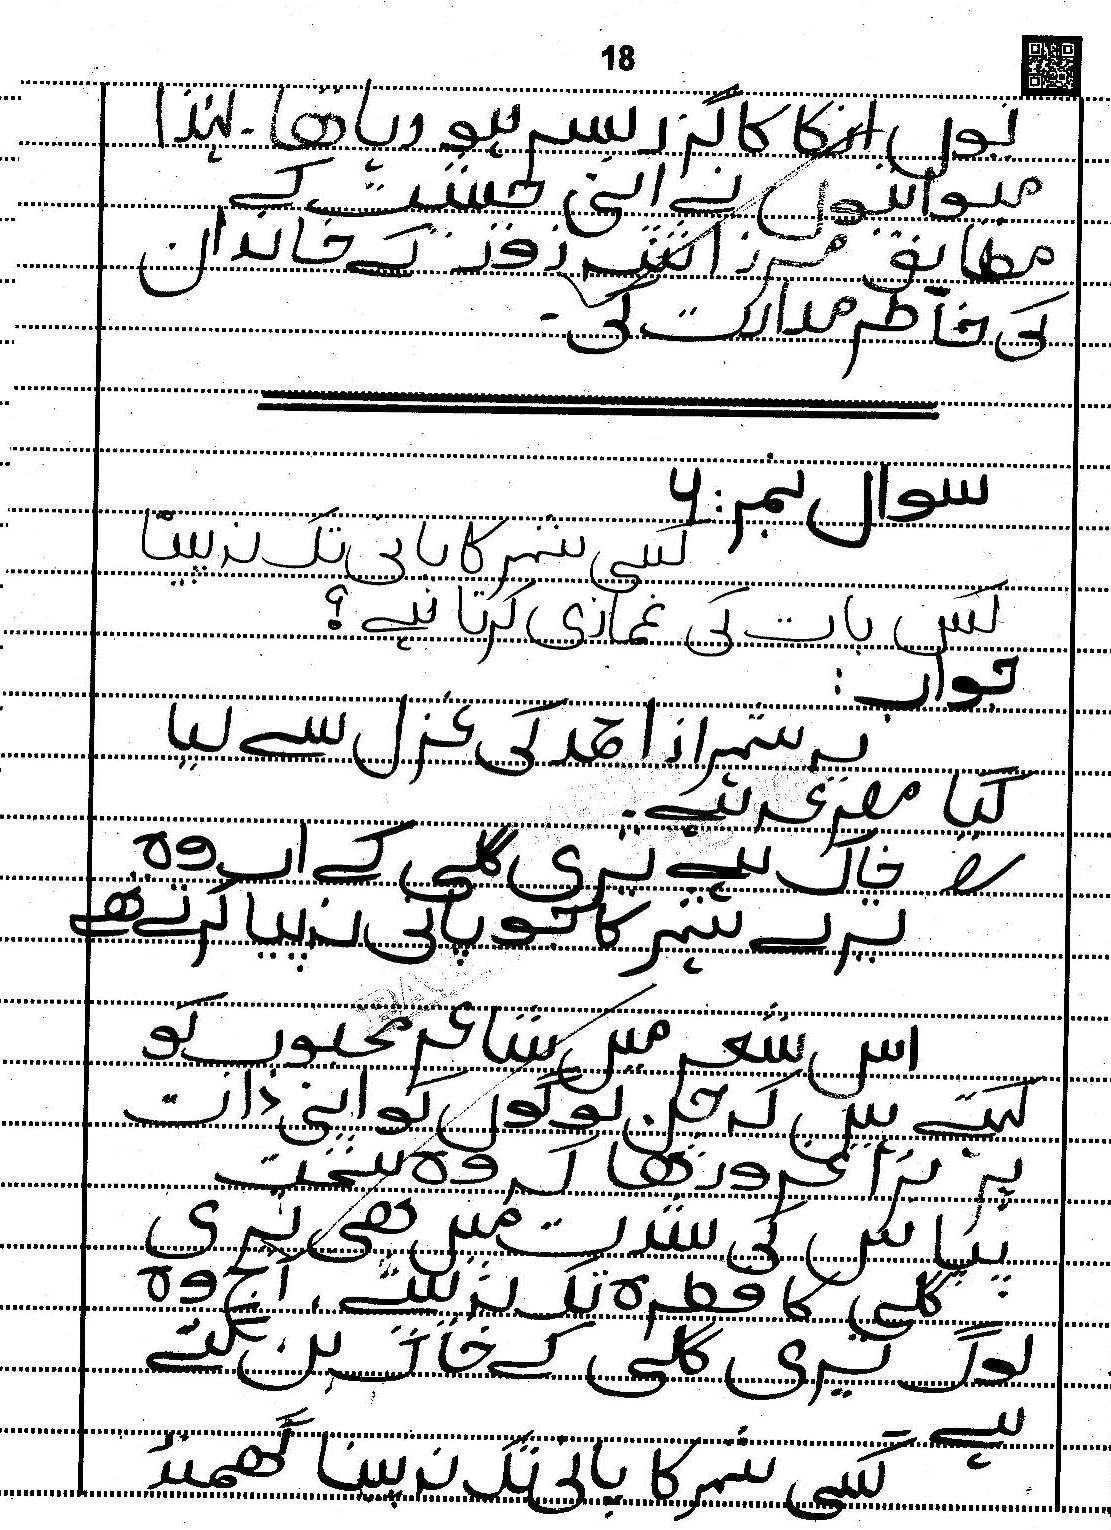 18
یوں انکا گزر بسر ہو رہا تھا۔ لہٰذا
میواتیوں نے اپنی حیثیت کے
مطابق مرزا تیتر زور کے خاندان
کی خاطر مدارت کی۔
سوال نمبر: ۷
کسی شہر کا پانی تک نہ پینا
کس بات کی غمازی کرتا ہے؟
جواب:
یہ شہراز احمد کی غزل سے لیا
گیا مصرعہ ہے۔
خاک ہے تیری گلی کے اب وہ
تیرے شہر کا جو پانی نہ پیا کرتے تھے
اس شعر میں شاعر محبوب کو
کہتے ہیں کہ جن لوگوں کو اپنی ذات
پر بڑا غرور تھا کہ وہ سخت
پیاس کی شدت میں بھی تیری
گلی کا قطرہ تک نہ پیتے، آج وہ
لوگ تیری گلی کے خاک بن گئے
ہے۔
کسی شہر کا پانی تک نہ پینا گھمنڈ